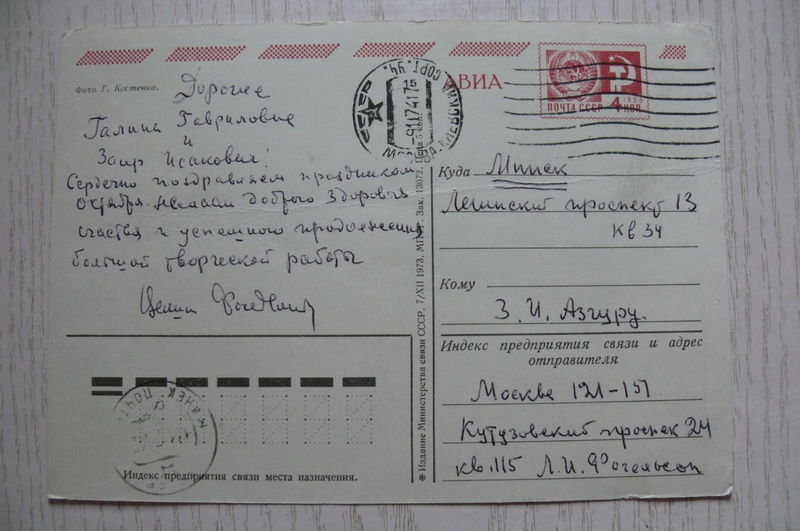 Фото Г. Костенко.
Дорогие
Галина Гавриловна
и
Заир Исакович!
Сердечно поздравляем праздником
Октября. Желаем доброго здоровья
счастья и успешного продолжения
большой творческой работы
Целин
АВИА
ПОЧТА СССР 4 КОП
1966
Куда Минск
Ленинский проспект 13
кв 34
Кому
З. И. Азгуру.
Индекс предприятия связи и адрес
отправителя
Москва 121-151
Кутузовский проспек 24
кв. 115 Л. И. Фогельсон
* Издание Министерства связи СССР. 7/XII 1973. МПФГ. Зак. 13072. Цена 5 коп.
МИНСК ПОЧТ
Индекс предприятия связи места назначения.